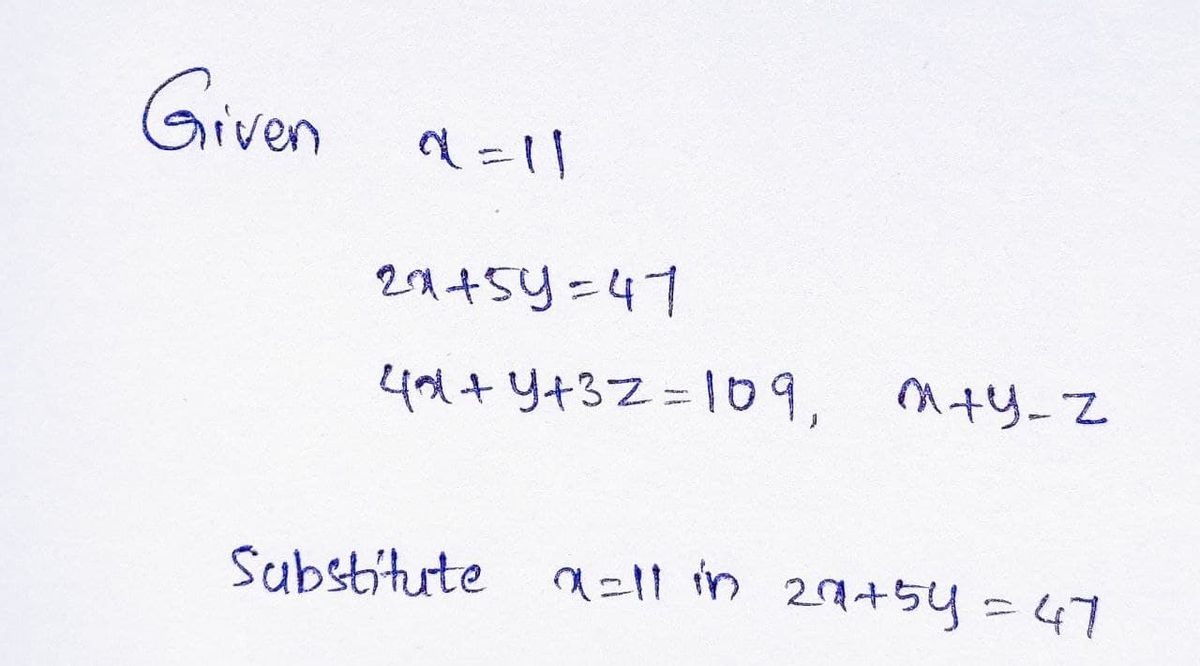 Given x=11
2x+5y=47
4x+y+3z=109, x+y-z
Substitute x=11 in 2x+5y=47